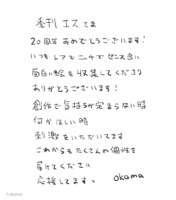 季刊エスさま
20周年おめでとうございます!
いつもレアでニッチでセンス良い
面白い絵を収集してくださり
ありがとうございます!
創作で気持ちが定まらない時
何かほしい時
刺激をいただいてます
これからもたくさんの個性を
届けてください
応援してます。 okama
©okama